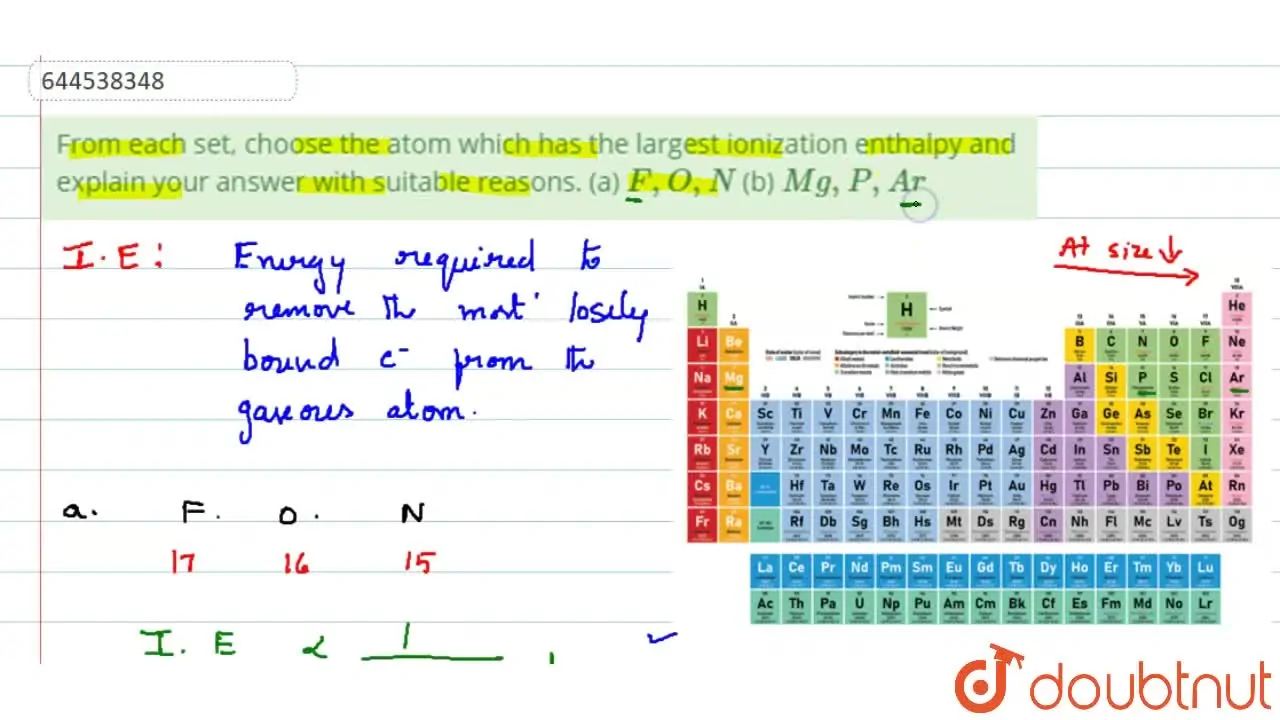 644538348
From each set, choose the atom which has the largest ionization enthalpy and
explain your answer with suitable reasons. (a) F, O, N (b) Mg, P, Ar
I.E: Energy required to
remove the most losely
bound e- from the
gaseous atom.
At size ↓
a. F. O. N
17 16 15
I.E ∝ 1
1 18
H H He
2 13 14 15 16 17
Li Be B C N O F Ne
Na Mg Al Si P S Cl Ar
3 4 5 6 7 8 9 10 11 12
K Ca Sc Ti V Cr Mn Fe Co Ni Cu Zn Ga Ge As Se Br Kr
Rb Sr Y Zr Nb Mo Tc Ru Rh Pd Ag Cd In Sn Sb Te I Xe
Cs Ba Hf Ta W Re Os Ir Pt Au Hg Tl Pb Bi Po At Rn
Fr Ra Rf Db Sg Bh Hs Mt Ds Rg Cn Nh Fl Mc Lv Ts Og
La Ce Pr Nd Pm Sm Eu Gd Tb Dy Ho Er Tm Yb Lu
Ac Th Pa U Np Pu Am Cm Bk Cf Es Fm Md No Lr
doubtnut